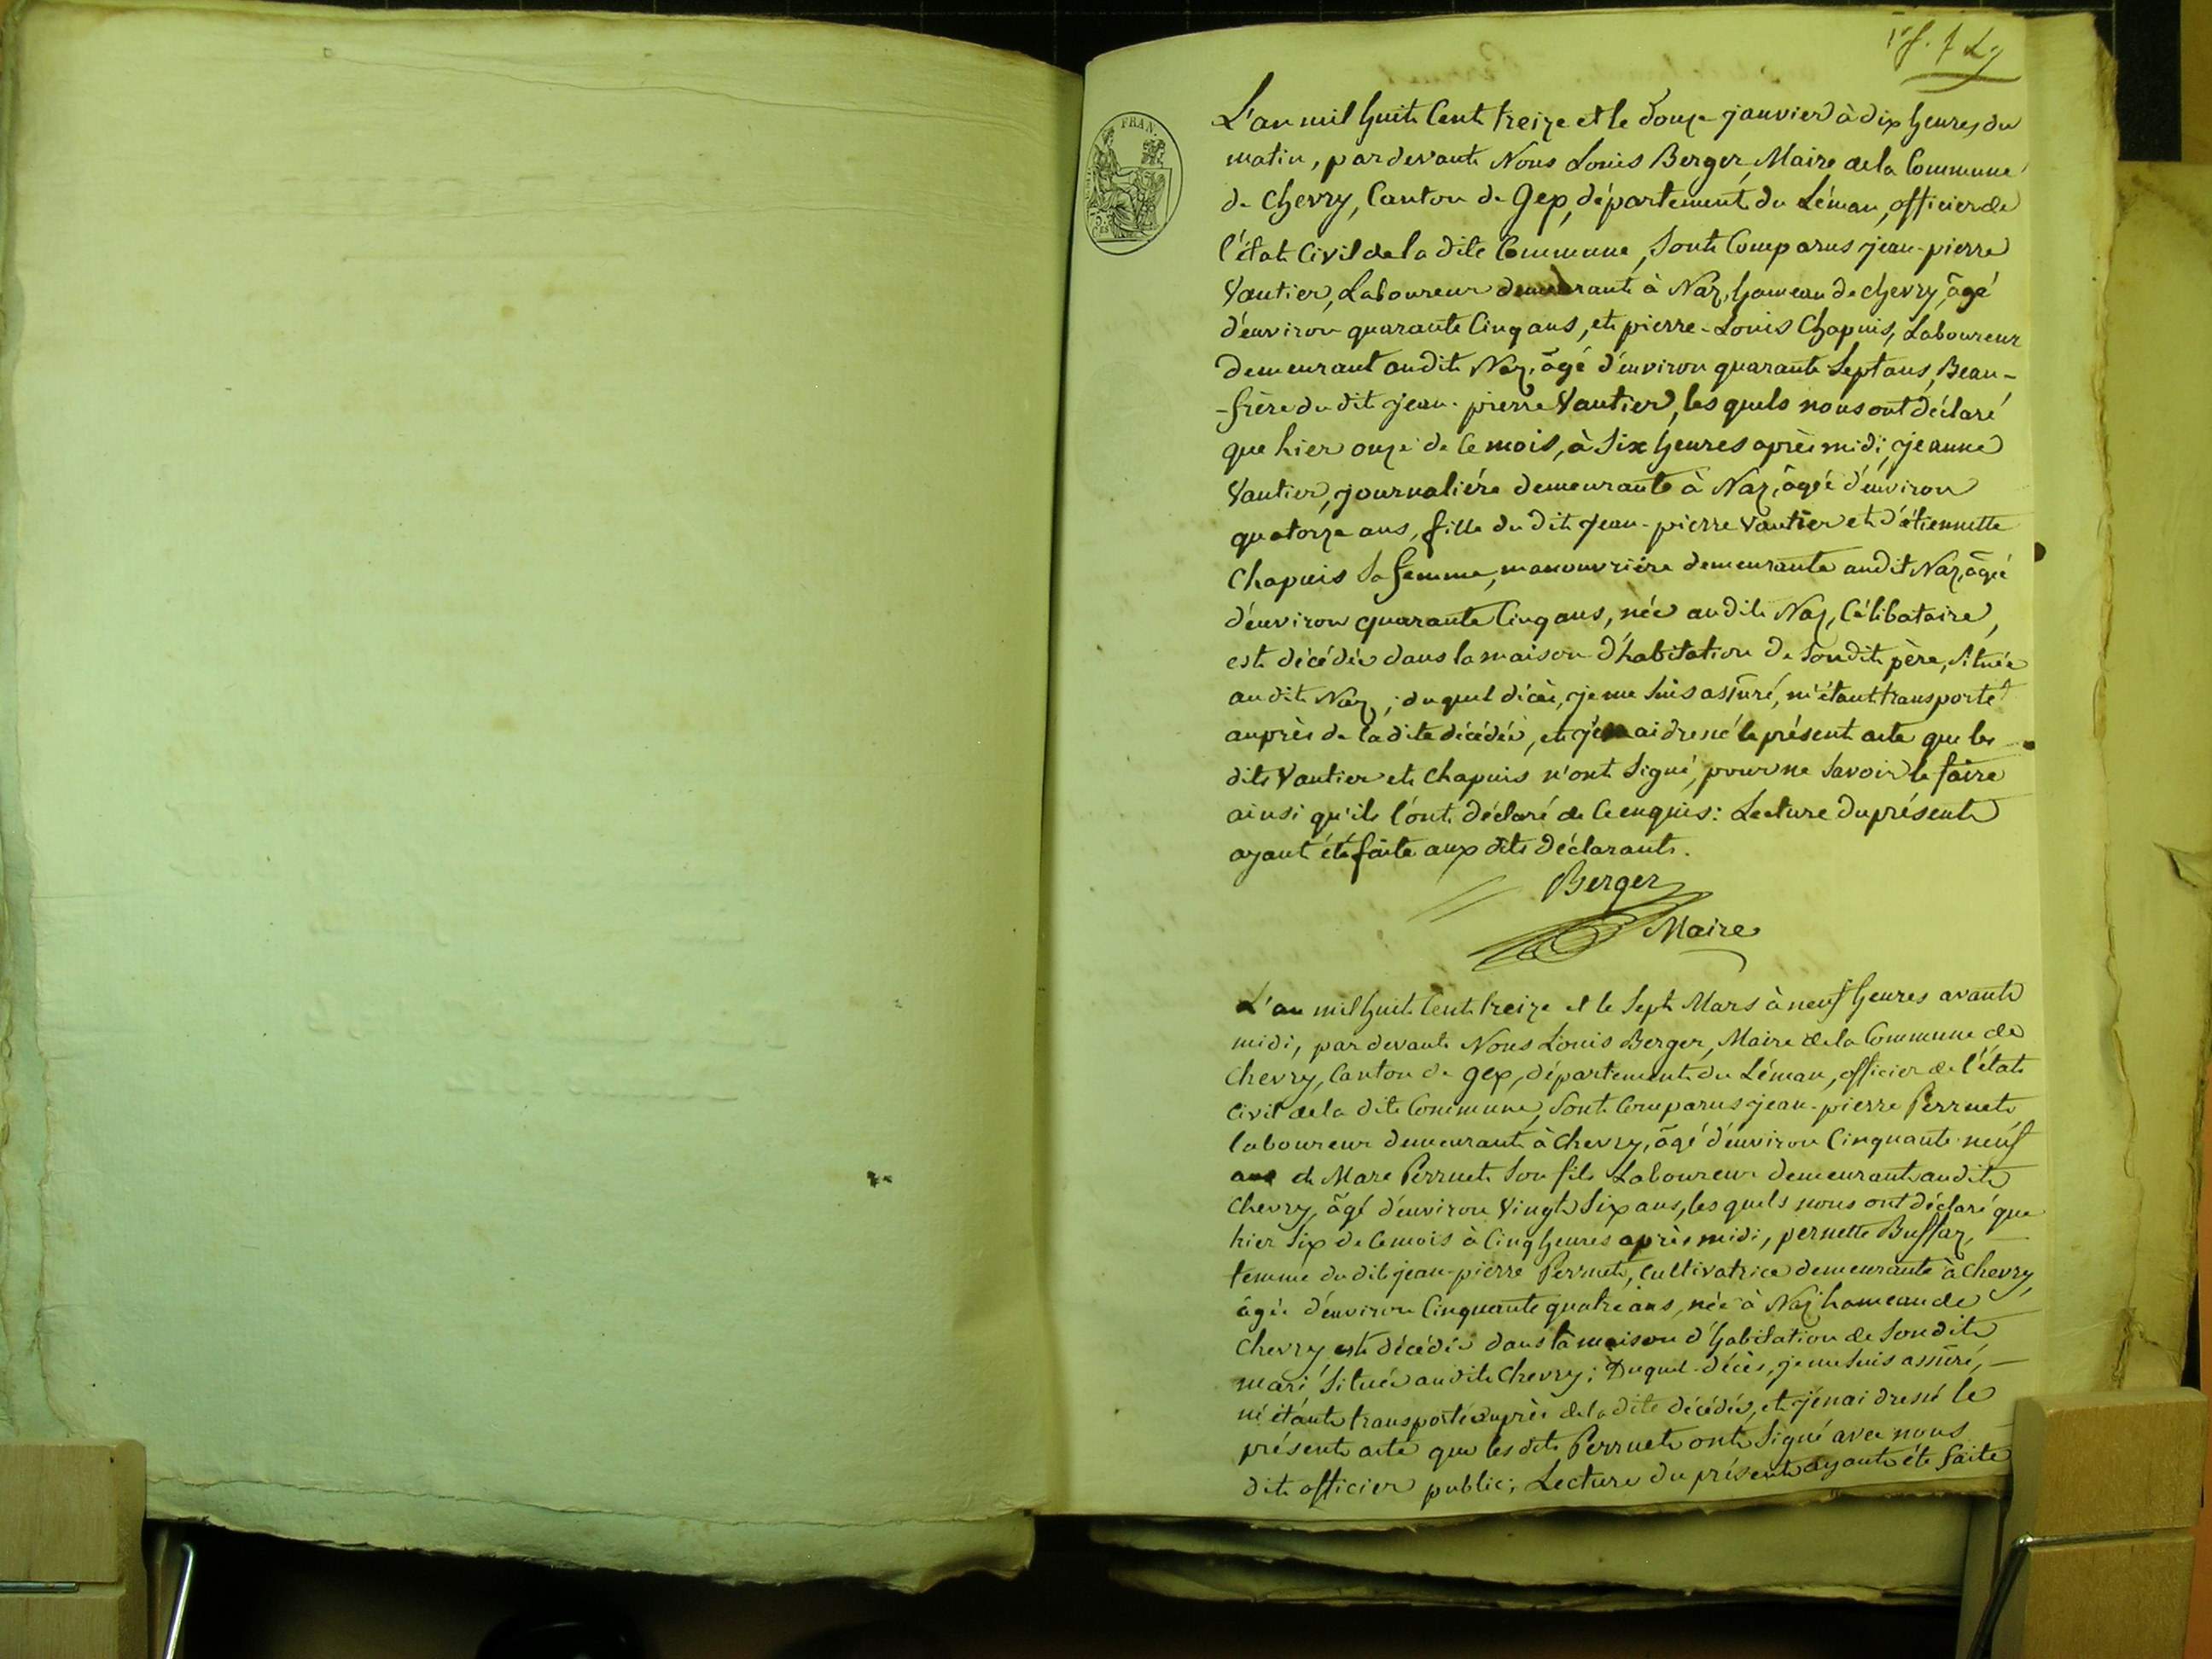 FRAN.
L'an mil huit Cent treize et le douze janvier à dix heures du
matin, par devant Nous Louis Berger, Maire de la Commune
de Chevry, Canton de Gex, département du Léman, officier de
l'état Civil de la dite Commune, Sont Comparus jean-pierre
Vautier, Laboureur demeurant à Naz, hameau de chevry, âgé
d'environ quarante Cinq ans, et pierre-Louis Chapuis, Laboureur
demeurant audit Naz, âgé d'environ quarante Sept ans, Beau-
-frère du dit jean-pierre Vautier, les quels nous ont déclaré
que hier onze de Ce mois, à Six heures après midi, jeanne
Vautier, journalière demeurante à Naz, âgée d'environ
quatorze ans, fille du dit jean-pierre Vautier et d'étiennette
Chapuis Sa femme, manouvrière demeurante audit Naz, âgée
d'environ quarante Cinq ans, née audit Naz, Célibataire,
est décédée dans la maison d'habitation de Sondit père, Située
audit Naz; duquel décès, je me Suis assuré, m'étant transporté
auprès de la dite décédée, et j'en ai dressé le présent acte que les
dits Vautier et Chapuis n'ont Signé, pour ne Savoir le faire
ainsi qu'ils l'ont déclaré de Ce enquis: Lecture du présent
ayant été faite aux dits déclarants.
Berger
Maire
L'an mil huit Cent treize et le Sept Mars à neuf heures avant
midi, par devant Nous Louis Berger, Maire de la Commune de
Chevry, Canton de gex, département du Léman, officier de l'état
Civil de la dite Commune, Sont Comparus jean-pierre Perruet
laboureur demeurant à Chevry, âgé d'environ Cinquante neuf
ans et Marc Perruet Son fils Laboureur demeurant audit
Chevry, âgé d'environ Vingt Six ans, les quels nous ont déclaré que
hier Six de Ce mois à Cinq heures après midi, pernette Buffaz,
femme du dit jean-pierre Perruet, Cultivatrice demeurante à Chevry,
âgée d'environ Cinquante quatre ans, née à Naz hameau de
Chevry est décédée dans la maison d'habitation de Sondit
mari Située audit Chevry; Duquel décès, je me Suis assuré,
m'étant transporté auprès de la dite décédée, et j'en ai dressé le
présent acte que les dits Perruet ont Signé avec nous
dit officier public; Lecture du présent ayant été faite